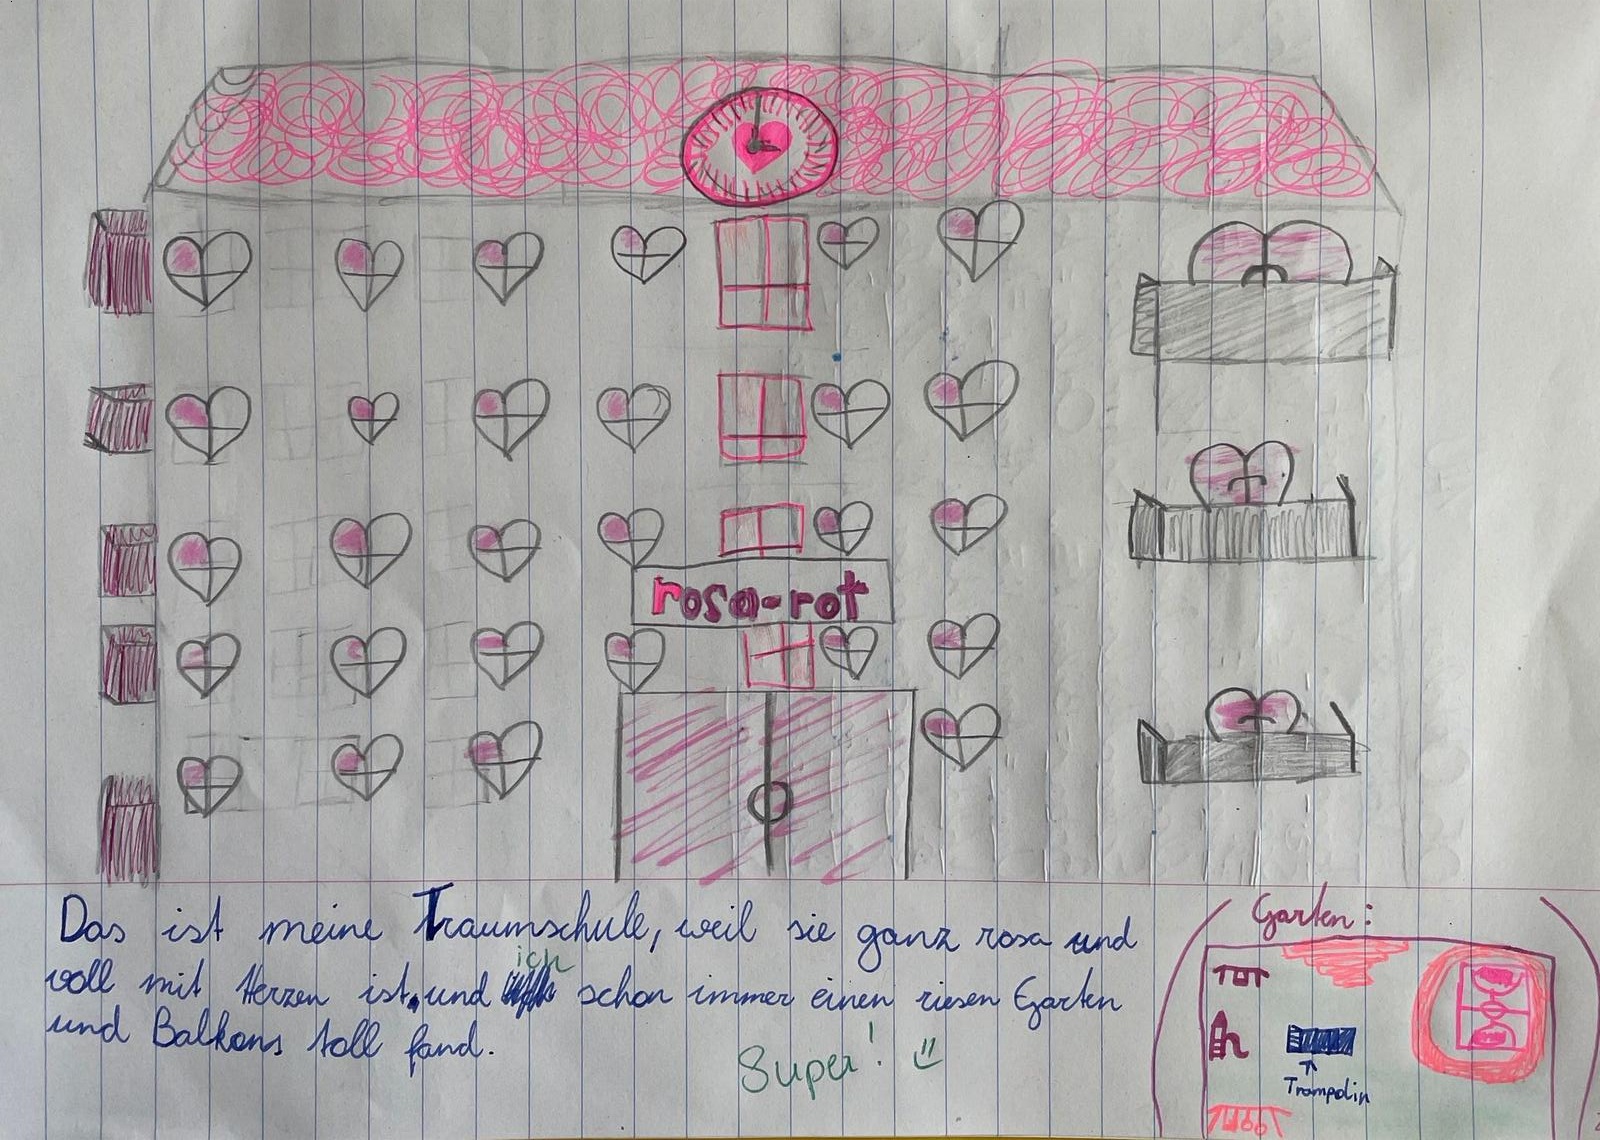 rosa-rot
Das ist meine Traumschule, weil sie ganz rosa und
ich
voll mit Herzen ist. und schon immer einen riesen Garten
und Balkons toll fand.
Super!
Garten:
Trampolin